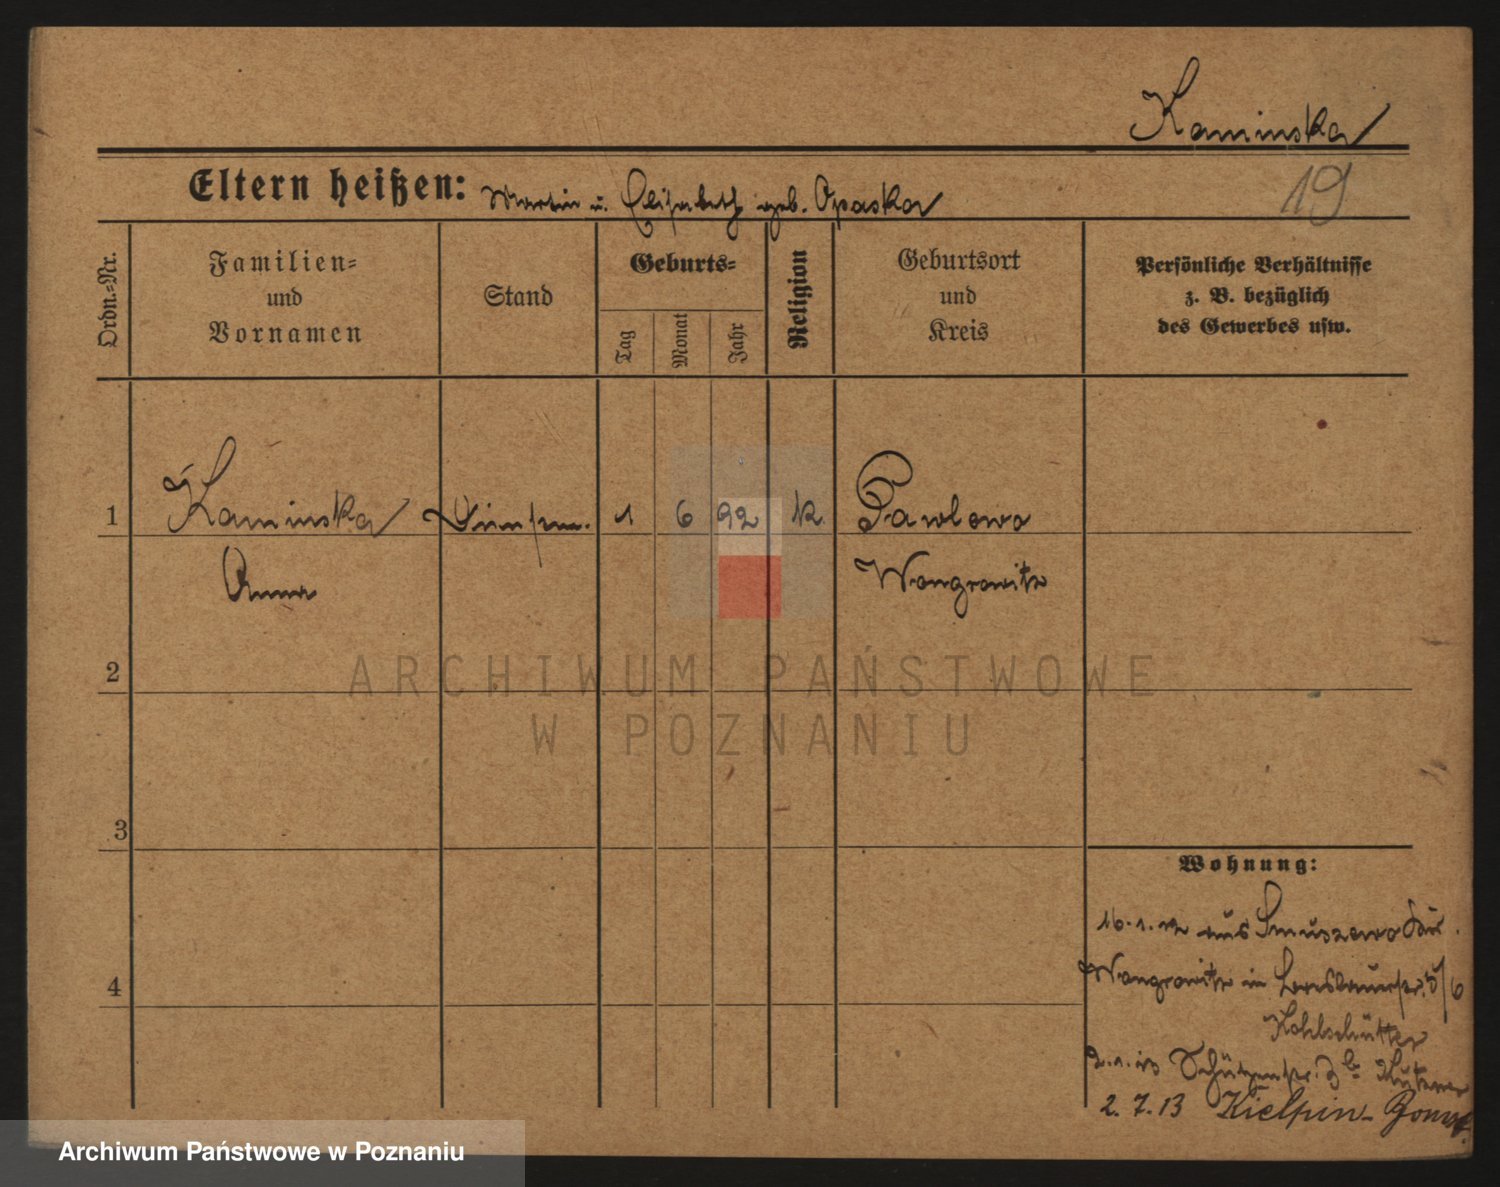 Kaminska
Eltern heißen: Martin u. Elisabeth geb. Opaska
19
Ordn.-Nr.
Familien-
und
Vornamen
Stand
Geburts-
Tag
Monat
Jahr
Religion
Geburtsort
und
Kreis
Persönliche Verhältnisse
z. B. bezüglich
des Gewerbes usw.
1 Kaminska 1 6 92 k. Pawlowo
Anna Wongrowitz
2
3
4
Wohnung:
16.1.12 aus Smuszewo
Wongrowitz in 5/6
Kohlschütter
2.1.13 Schützenstr.
2.7.13 Kielpin - Bomst.
ARCHIWUM PAŃSTWOWE
W POZNANIU
Archiwum Państwowe w Poznaniu